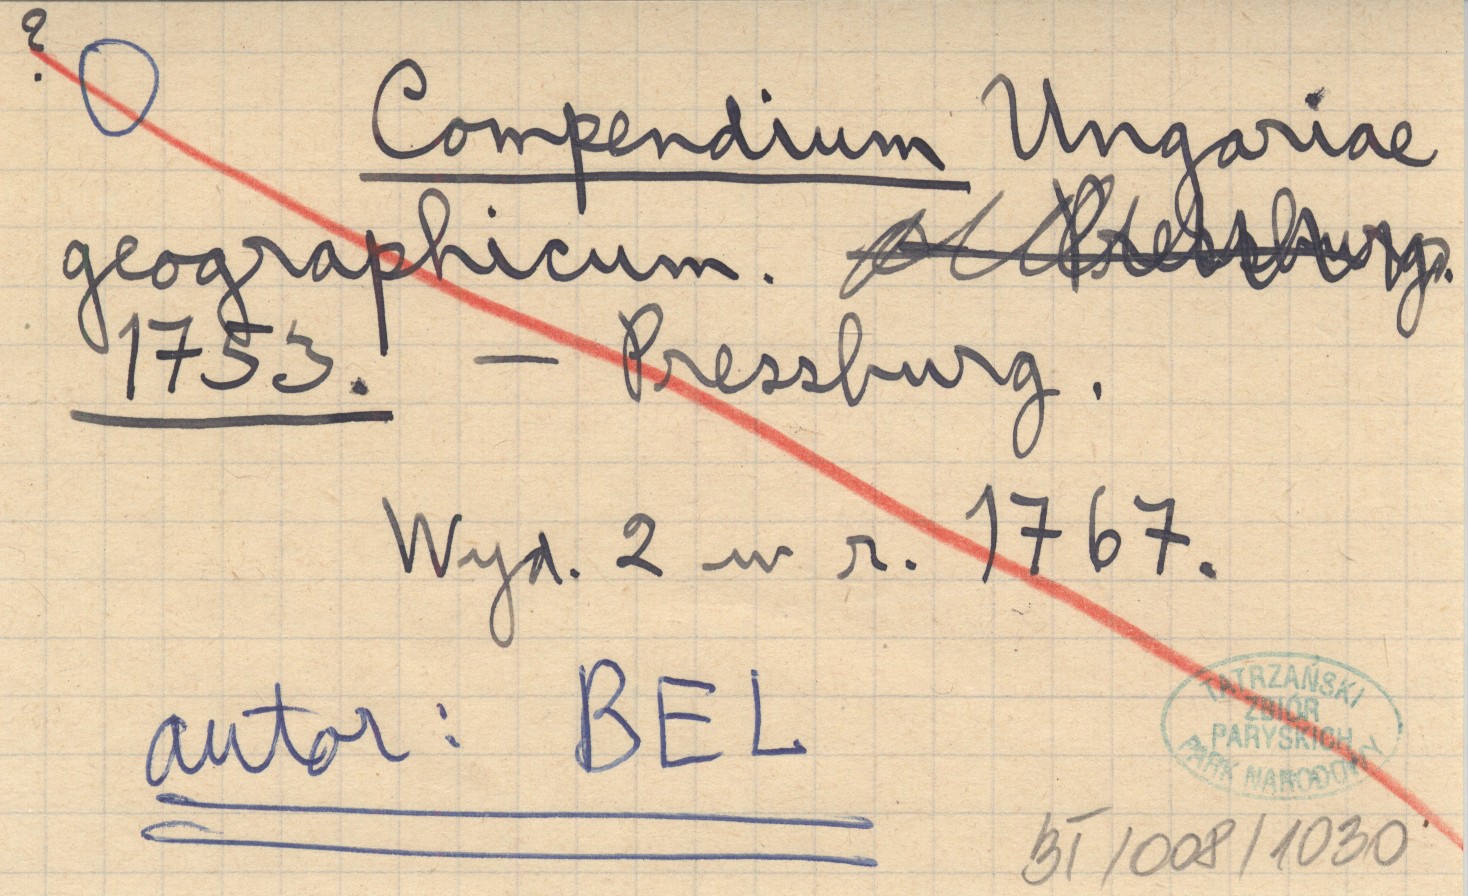 ?
Compendium Ungariae
geographicum. Pressburg.
1753. — Pressburg.
Wyd. 2 w r. 1767.
autor: BEL
TATRZAŃSKI
ZBIÓR
PARYSKICH
PARK NARODOWY
/008/1030